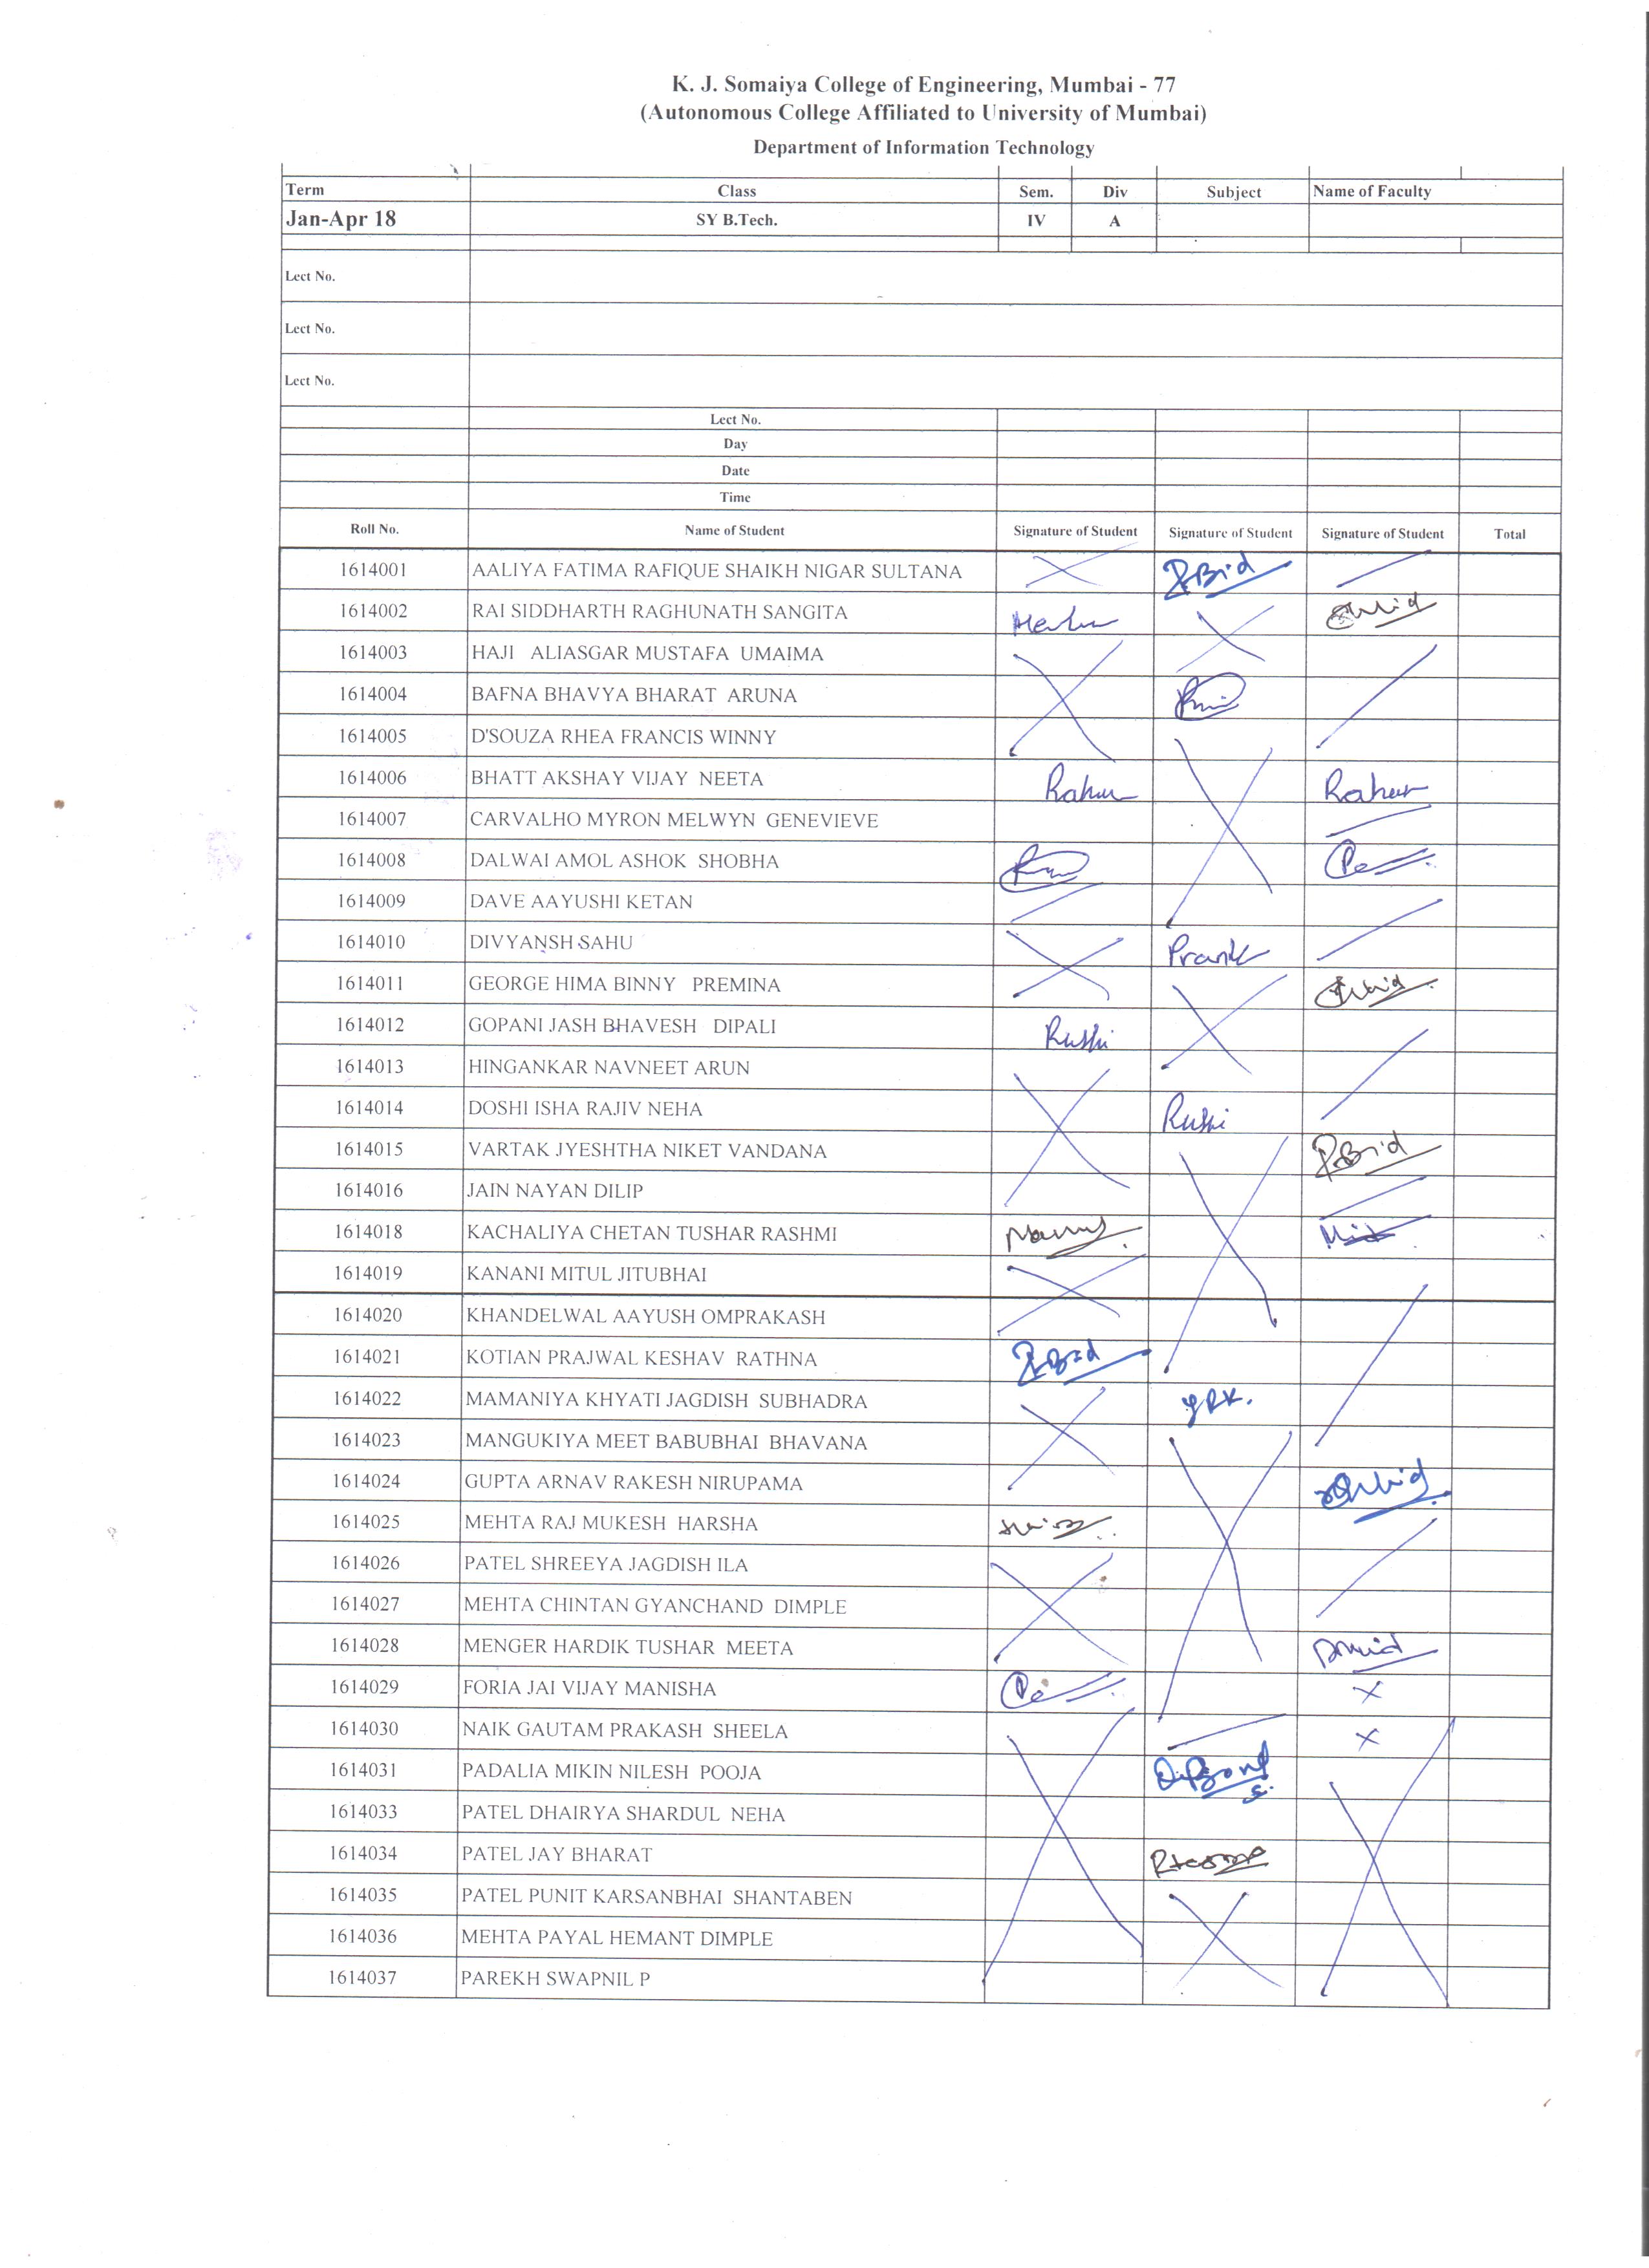 K. J. Somaiya College of Engineering, Mumbai - 77
(Autonomous College Affiliated to University of Mumbai)
Department of Information Technology
Term Class Sem. Div Subject Name of Faculty
Jan-Apr 18 SY B.Tech. IV A
Lect No.
Lect No.
Lect No.
Lect No.
Day
Date
Time
Roll No. Name of Student Signature of Student Signature of Student Signature of Student Total
1614001 AALIYA FATIMA RAFIQUE SHAIKH NIGAR SULTANA
1614002 RAI SIDDHARTH RAGHUNATH SANGITA
1614003 HAJI ALIASGAR MUSTAFA UMAIMA
1614004 BAFNA BHAVYA BHARAT ARUNA
1614005 D'SOUZA RHEA FRANCIS WINNY
1614006 BHATT AKSHAY VIJAY NEETA
1614007 CARVALHO MYRON MELWYN GENEVIEVE
1614008 DALWAI AMOL ASHOK SHOBHA
1614009 DAVE AAYUSHI KETAN
1614010 DIVYANSH SAHU
1614011 GEORGE HIMA BINNY PREMINA
1614012 GOPANI JASH BHAVESH DIPALI Rushi
1614013 HINGANKAR NAVNEET ARUN
1614014 DOSHI ISHA RAJIV NEHA Rushi
1614015 VARTAK JYESHTHA NIKET VANDANA
1614016 JAIN NAYAN DILIP
1614018 KACHALIYA CHETAN TUSHAR RASHMI
1614019 KANANI MITUL JITUBHAI
1614020 KHANDELWAL AAYUSH OMPRAKASH
1614021 KOTIAN PRAJWAL KESHAV RATHNA
1614022 MAMANIYA KHYATI JAGDISH SUBHADRA
1614023 MANGUKIYA MEET BABUBHAI BHAVANA
1614024 GUPTA ARNAV RAKESH NIRUPAMA
1614025 MEHTA RAJ MUKESH HARSHA
1614026 PATEL SHREEYA JAGDISH ILA
1614027 MEHTA CHINTAN GYANCHAND DIMPLE
1614028 MENGER HARDIK TUSHAR MEETA
1614029 FORIA JAI VIJAY MANISHA
1614030 NAIK GAUTAM PRAKASH SHEELA
1614031 PADALIA MIKIN NILESH POOJA
1614033 PATEL DHAIRYA SHARDUL NEHA
1614034 PATEL JAY BHARAT
1614035 PATEL PUNIT KARSANBHAI SHANTABEN
1614036 MEHTA PAYAL HEMANT DIMPLE
1614037 PAREKH SWAPNIL P